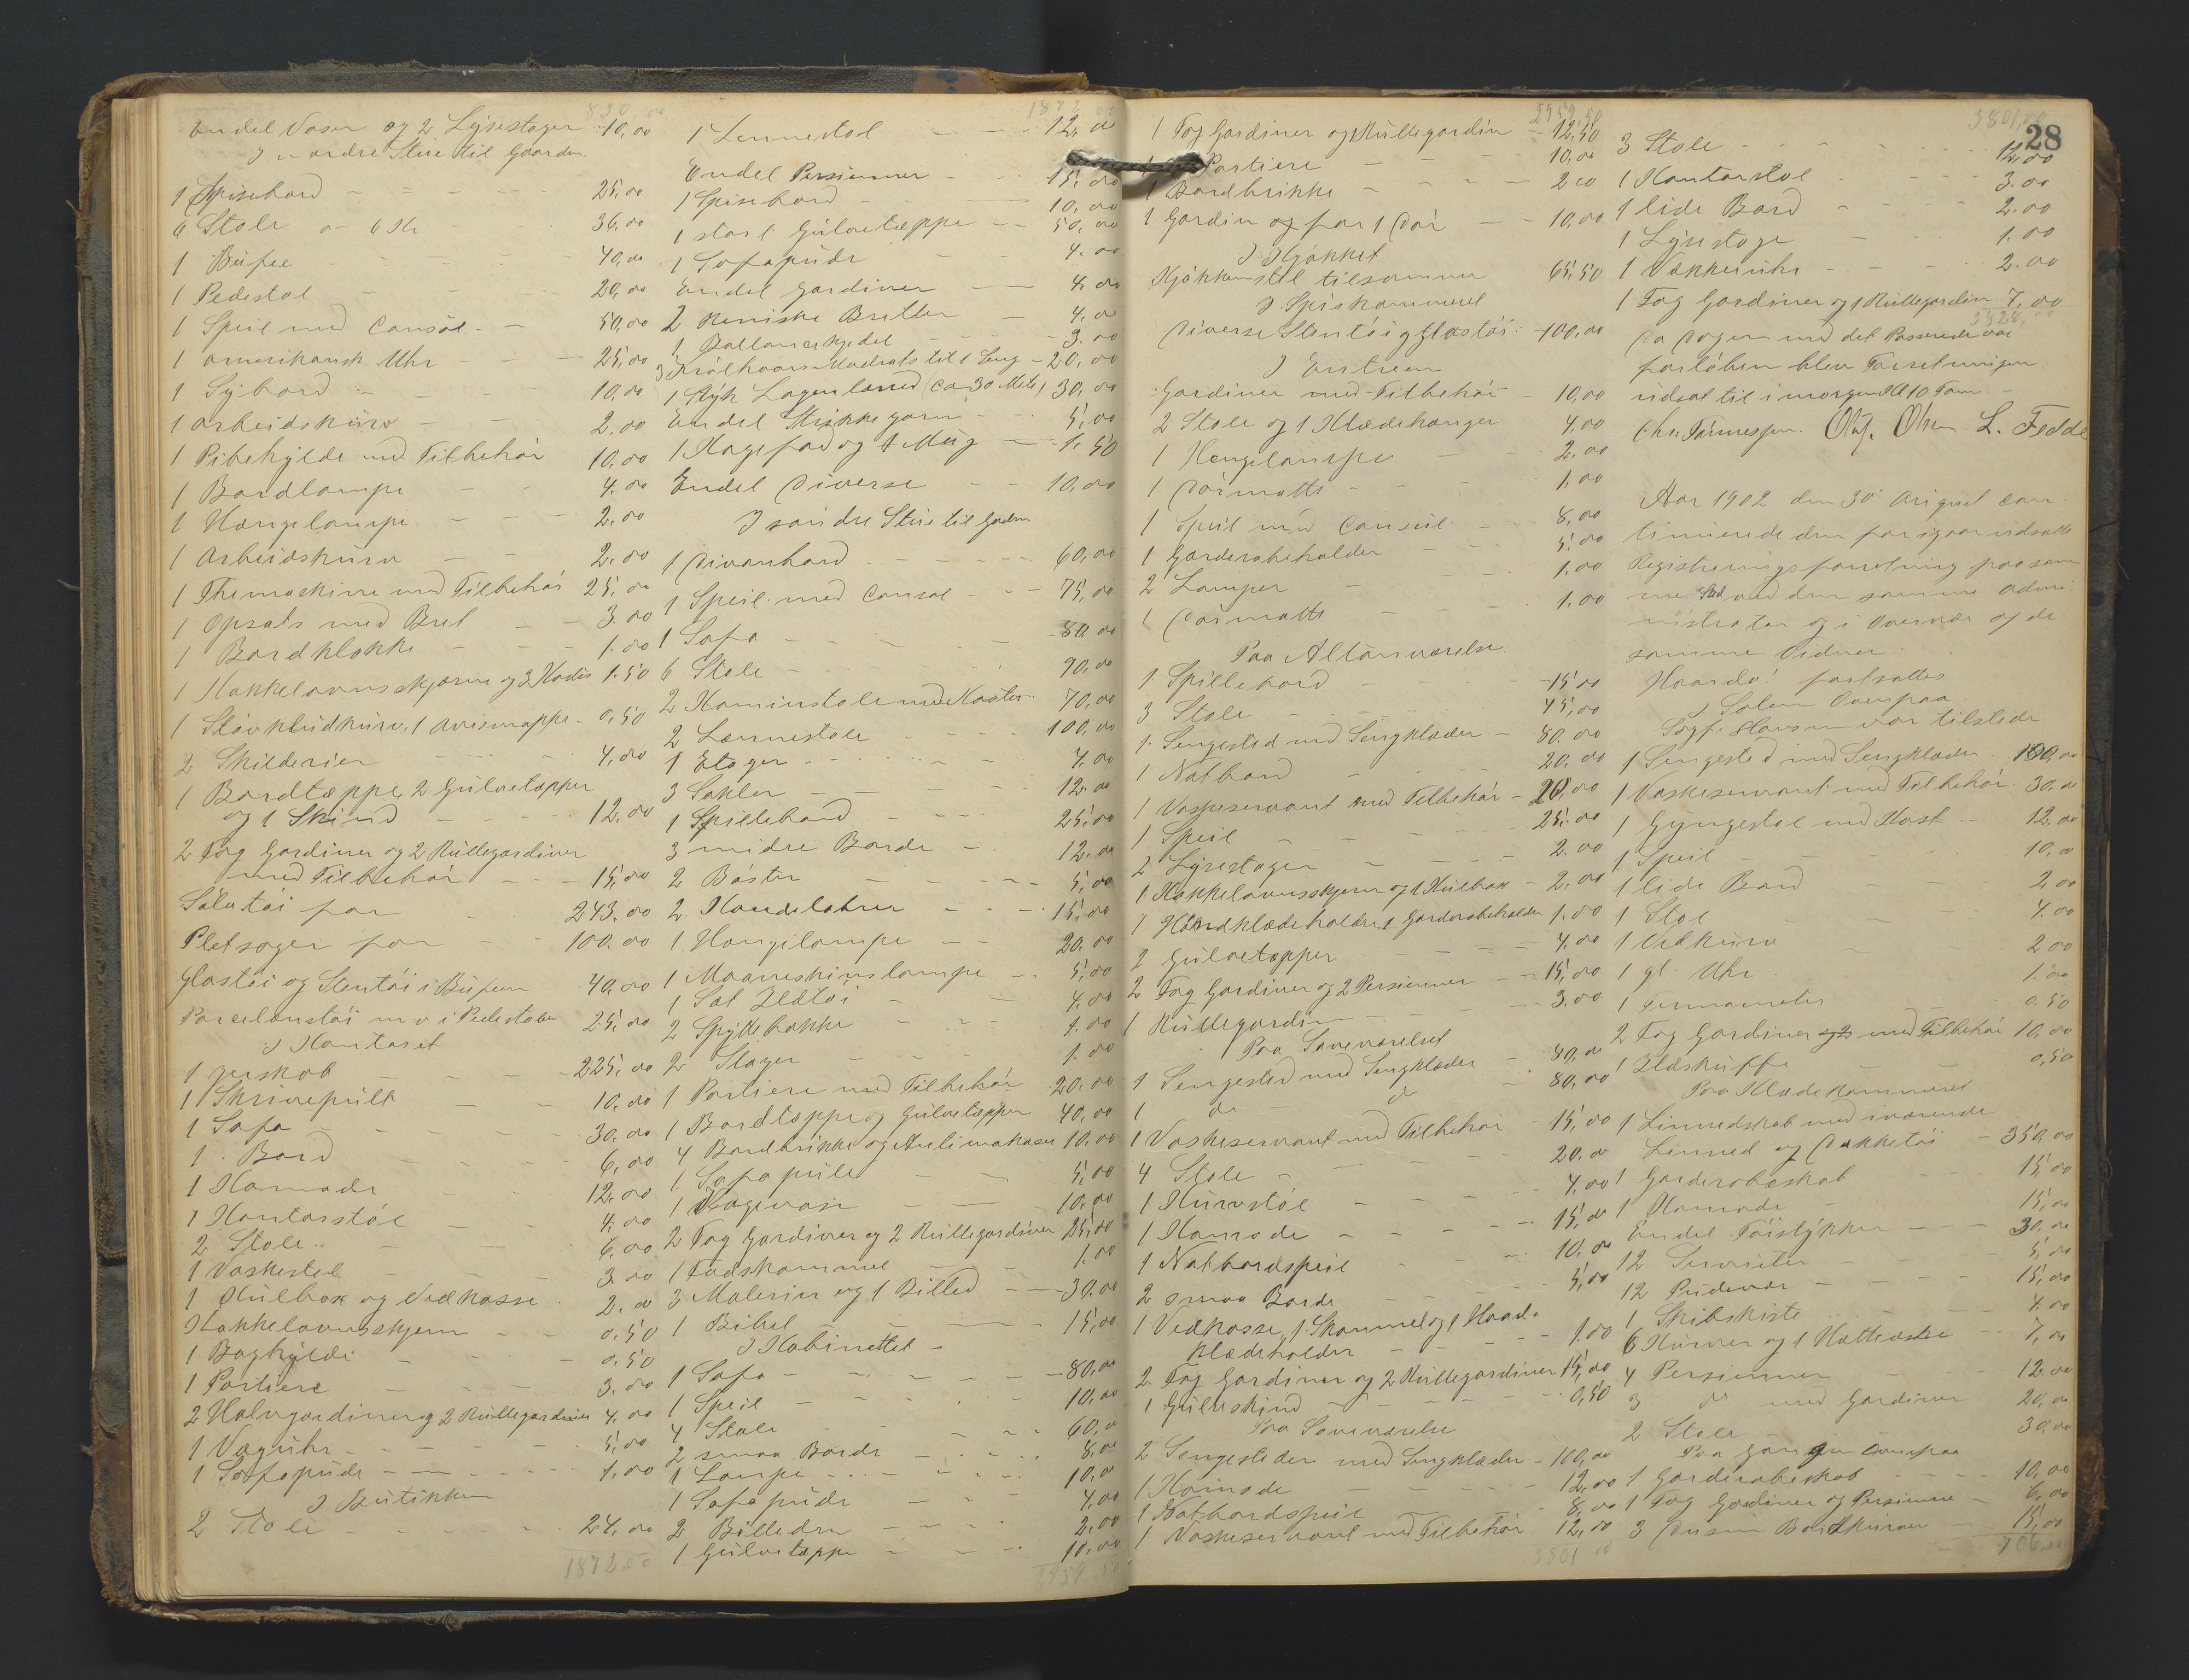 820
Endel Vaser og 2 Lysestager 10,00
I nordre Stue til Gaarden.
1 Spisebord 25,00
6 Stole a 6 Kr 36,00
1 Büfee 40,00
1 Pedestal 20,00
1 Speil med Consol 50,00
1 amerikansk Uhr 25,00
1 Sybord 10,00
1 Arbeidskurv 2.00
1 Pibehylde med Tilbehör 10,00
1 Bordlampe 4.00
1 Hængelampe 2,00
1 Arbeidskurv 2.00
1 Themaskine med Tilbehör 25,00
1 Opsats med Bret 3.00
1 Bordklokke 1.00
1 Kakkelovnsskjærm og 3 Kader 1.50
1 Stövkludkurv, 1 Avismappe 0,50
2 Skilderier 4,00
1 Bordtæppe, 2 Gulvetæpper
og 1 Skind 12,00
2 Fag Gardiner og 2 Rullegardiner
med Tilbehör 15,00
Sölvtöi for 243.00
Pletsager for 100.00
Glastöi og Stentöi i Büfeen 40,00
Porcelænstöi m v i Pedestalen 25,00
I Kontoret
1 Jerskab 225,00
1 Skrivepult 10,00
1 Sofa 30,00
1 Bord 6,00
1 Komode 12.00
1 Kontorstol 4,00
2 Stole 6.00
1 Vaskestel 3.00
1 Kulbox og Vedkasse 2.00
Kakkelovnsskjerm 0.50
1 Boghylde 0.50
1 Portiere 3.00
2 Halvgardiner og 2 Rullegardiner 4.00
1 Væguhr 5,00
1 Sofapude 1.00
I Butikken
2 Stole 24,00
1872.50
1872
1 Lennestol 12,00
Endel Persienner 15,00
1 Spisebord 10,00
1 stort Gulvetæppe 50,00
1 Sofapude 4.00
Endel Gardiner 4.00
2 Bretter 4,00
1 3.00
3 Krölhaars Madrats til 1 Seng 20,00
1 Styk Lagenlærred (ca 30 Meter) 30,00
Endel Strikkegarn 5,00
1 Kagefad og 1 Mug 1.50
Endel Diverse 10,00
I söndre Stue til Gaden
1 Divanbord 60,00
1 Speil med Consol 75,00
1 Sofa 80,00
6 Stole 90.00
2 Kaminstole med Kaster 70,00
2 Lænnestole 100,00
1 Etager 4.00
3 Sokler 12.00
1 Spillebord 25,00
3 mindre Borde 12.00
2 Büster 5,00
2 Kandelabrer 15,00
1 Hengelampe 20.00
1 Maaneskinslampe 5,00
1 Sat Ildtöi 4.00
2 Spyttebakke 1.00
2 Stager 1.00
1 Portiere med Tilbehör 20.00
1 Bordtæppe og Gulvetæpper 40,00
4 Bordbrikke og Antimakaser 10.00
1 Sofa pude 5,00
1 Kagevase 10,00
2 Fag Gardiner og 2 Rullegardiner 25,00
1 Fodskammel 1.00
3 Malerier og 1 Billed 30.00
1 Bibel 15,00
I Kabinettet
1 Sofa 80,00
1 Speil 10,00
4 Stole 60,00
2 smaa Borde 8,00
1 Lampe 10,00
1 Sofapude 4,00
2 Billeder 2,00
1 Gulvetæppe 10.00
2959.50
2959,50
1 Fag Gardiner og 1 Rullegardin 12,50
Portiere 10,00
1 Bordbrikke 2 00
1 Gardin og for 1 Dör 10,00
I Kjökket
Kjökkenstel tilsammen 65,50
I Spiskammeret
Diverse Stentöi og Glastöi 100,00
I Entreen
Gardiner med Tilbehör 10,00
2 Stole og 1 Klædehænger 4,00
1 Hengelampe 2.00
1 Dörmatte 1,00
1 Speil med Consul 8,00
1 Garderobeholder 5,00
2 Lamper 1.00
1 Dörmatte 1,00
Paa Altanværelse
1 Spillebord 15 00
3 Stole 45,00
1 Sengested med Sengklæder 80.00
1 Natbord 20.00
1 Vaskeservant med Tilbehör 20,00
1 Speil 25,00
2 Lysestager 2.00
1 Kakkelovnsskjerm og 1 Kulbox 2.00
1 Haandklædeholder, 1 Garderobeholder 1.00
2 Gulvetæpper 4.00
2 Fag Gardiner og 2 Persienner 15,00
1 Rullegardin 3.00
Paa Soveværelset
1 Sengested med Sengklæder 80,00
1 do d 80,00
1 Vaskeservant med Tilbehör 15,00
4 Stole 20.00
1 Kurvstol 4,00
1 Komode 15,00
1 Natbordspeil 10,00
2 smaa Borde 5,00
1 Vedkasse, 1 Skammel og 1 Haand-
klædeholder 1.00
2 Fag Gardiner og 2 Rullegardiner 15,00
1 Gulvskind 0,50
Paa Soveværelse
2 Sengesteder med Sengklæder 100,00
1 Komode 12,00
1 Natbordspeil 8,00
1 Vaskeservant med Tilbehör 12,00
3801 00
3801,00
28
3 Stole 12,00
1 Kontorstol 3.00
1 lide Bord 2.00
1 Lysestage 1.00
1 Vækkeruhr 2.00
1 Fag Gardiner og 1 Rullegardin 7,00
3828,00
Da Dagen med det Passerede var
forlöben blev Forretningen
udsat til imorgen Kl 10 Form
Chr. Tönnessen. Olaf. Olsen L. Fedde
Aar 1902 den 30 August con-
tinuerede den forigaar udsatte
Registreringsforretning paa sam
me Sted ved den samme admi-
nistrator og i Overvær af de
samme Vidner
Hvorda fortsattes
I Salen Ovenpaa
Sogf. Clausen var tilstede
1 Sengested med Sengklæder 100,00
1 Vaskeservant med Tilbehör 30,00
1 Gyngestol med Kast 12,00
1 Speil 10,00
1 lide Bord 2,00
1 Stol 4.00
1 Vedkurv 2 00
1 gl. Uhr 1.00
1 Termometer 0.50
2 Fag Gardiner med Tilbehör 10,00
1 Ildskuffe 0,50
Paa Klædekammeret
1 Linnedskab med iværende
Linned og Dækketöi 350,00
1 Garderobeskab 15,00
1 Komode 15,00
Endel Töistykker 30,00
12 Servietter 5,00
12 Pudevar 15,00
1 Skibskiste 4.00
6 Kurver og 1 Hatteæske 7,00
4 Persienner 12.00
3 do med Gardiner 20,00
2 Stole 30,00
Paa Gangen Ovenpaa
1 Garderobeskab 10,00
1 Fag Gardiner og Persienne 6,00
3 Dusin Bordknive 15,00
706,00